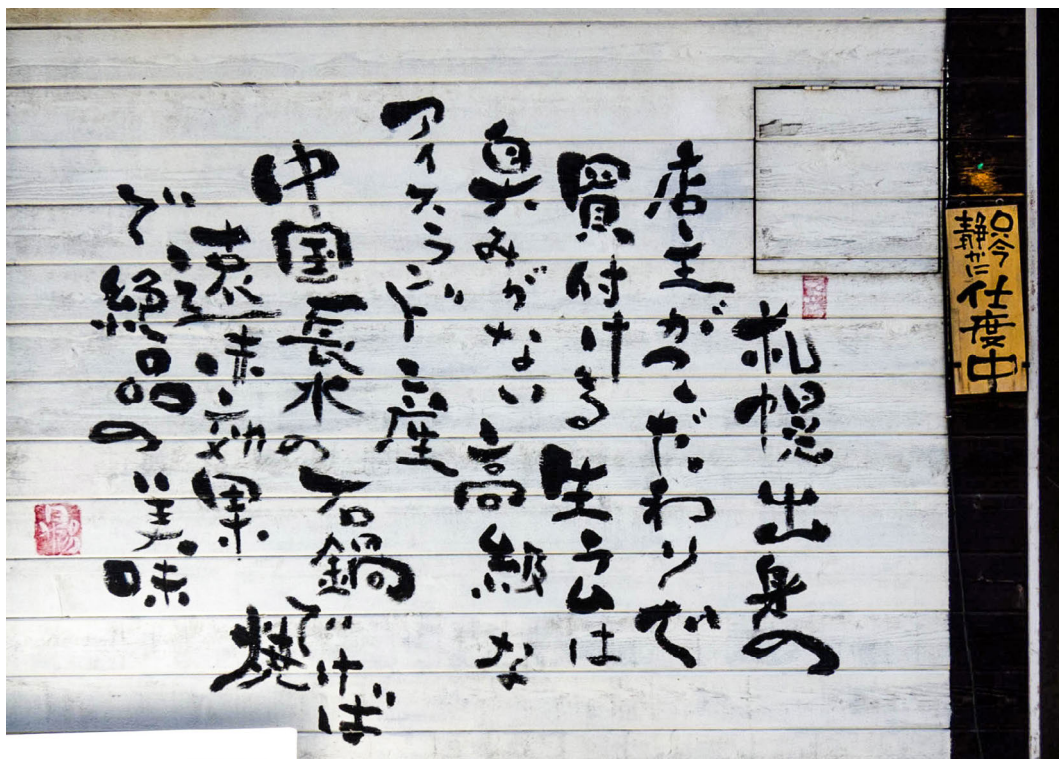 只今
静かに
仕度中
札幌出身の
店主がこだわりで
買付ける生ラムは
臭みがない高級な
アイスランド産
中国長水の石鍋で焼けば
遠赤効果
で絶品の美味